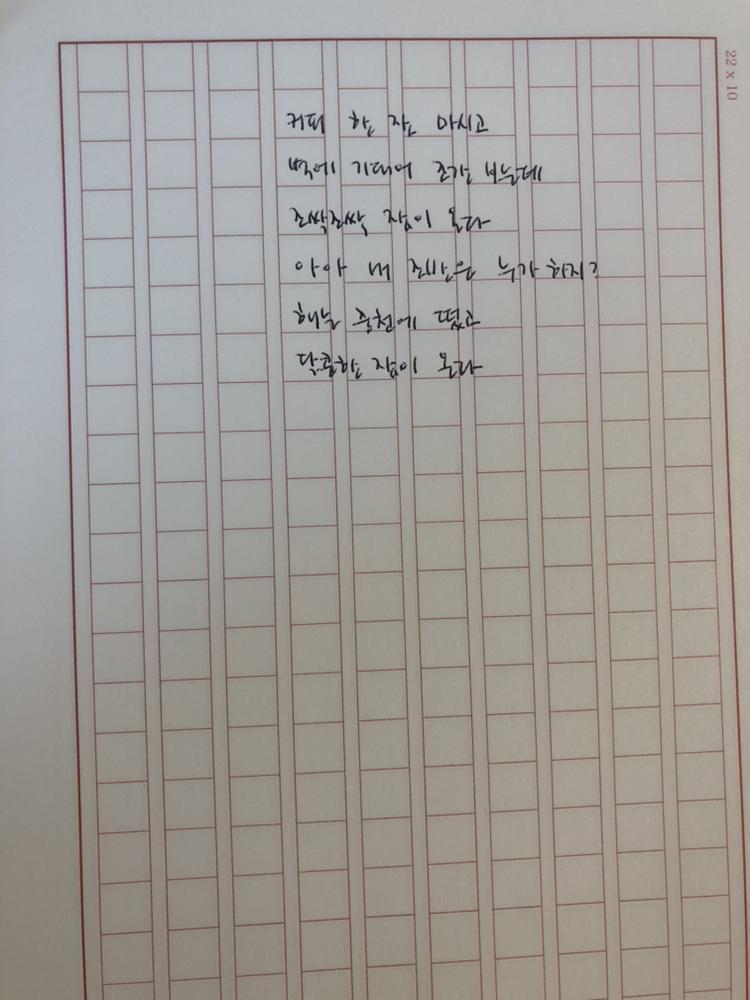 커피 한 잔 마시고
벽에 기대어 조간 보는데
조싹조싹 잠이 온다
아아 내 조반은 누가 하지?
해는 중천에 떴고
달콤한 잠이 온다
22 x 10